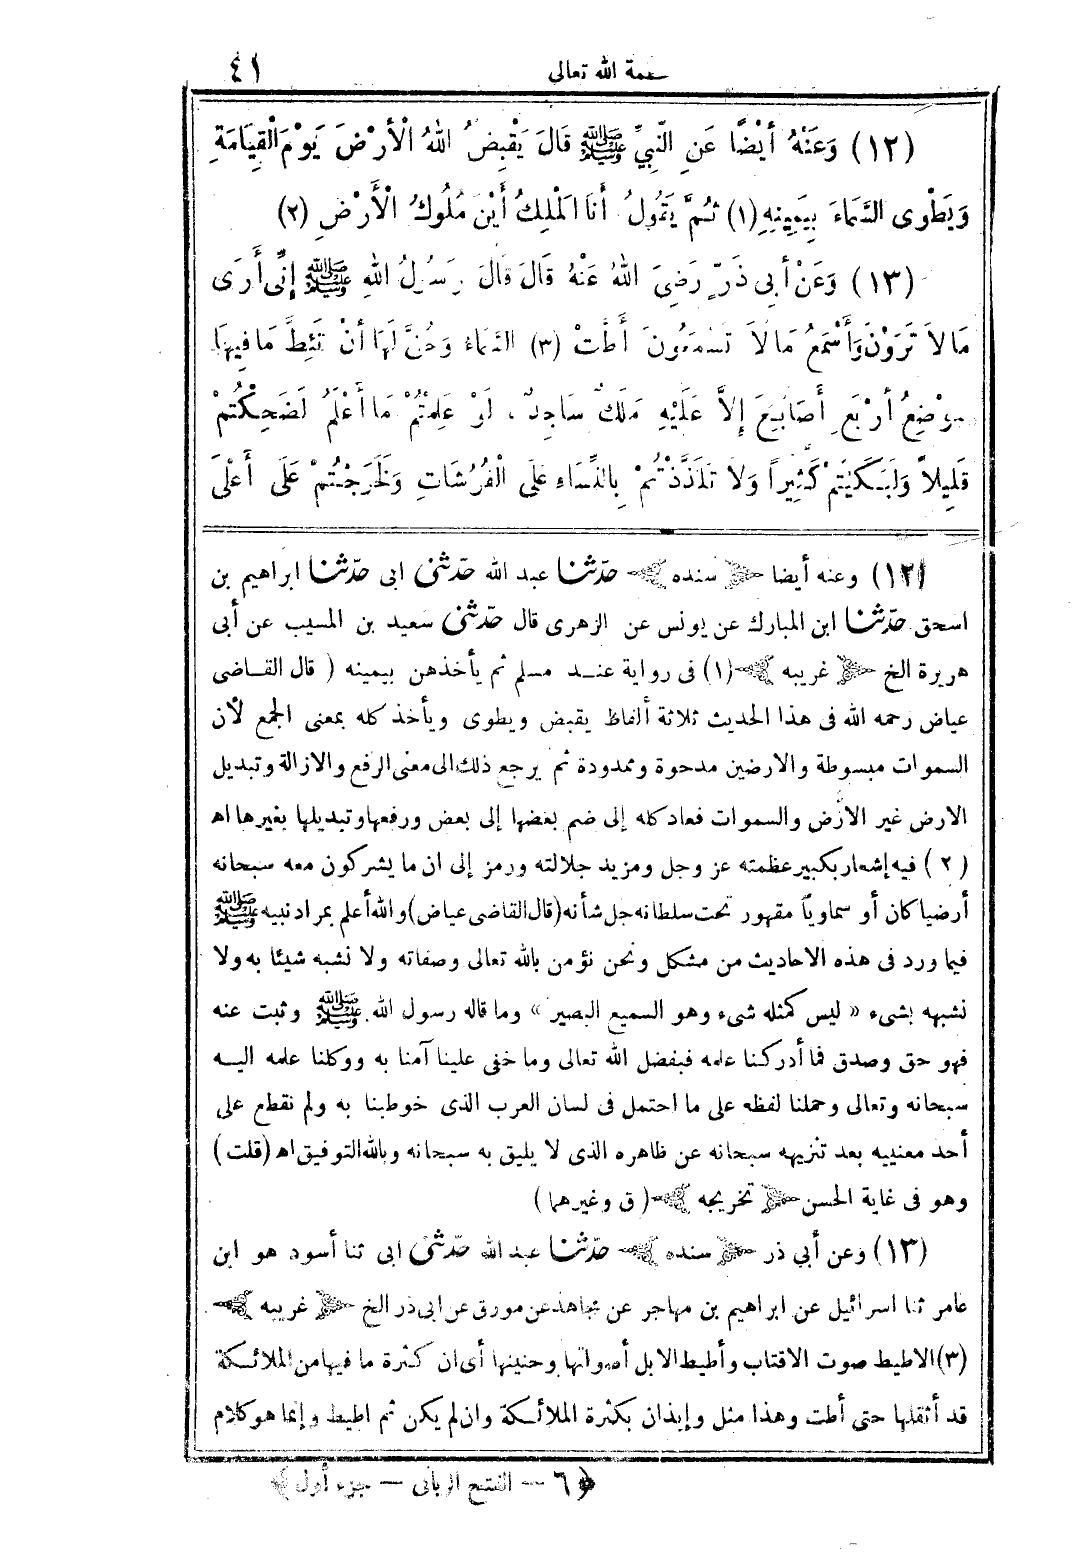 ٤١
الله تعالى
(١٢) وَعَنْهُ أَيْضًا عَنِ النَّبِيِّ ﷺ قَالَ يَقْبِضُ اللهُ الْأَرْضَ يَوْمَ الْقِيَامَةِ
وَيَطْوِى السَّمَاءَ بِيَمِينِهِ (١) ثُمَّ يَقُولُ أَنَا الْمَلِكُ أَيْنَ مُلُوكُ الْأَرْضِ (٢)
(١٣) وَعَنْ أَبِى ذَرٍّ رَضِىَ اللهُ عَنْهُ قَالَ قَالَ رَسُولُ اللهِ ﷺ إِنِّى أَرَى
مَالاَ تَرَوْنَ وَأَسْمَعُ مَالاَ تَسْمَعُونَ أَطَّتْ (٣) السَّمَاءُ وَحُقَّ لَهَا أَنْ تَئِطَّ مَا فِيهَا
مَوْضِعُ أَرْبَعِ أَصَابِعَ إِلاَّ عَلَيْهِ مَلَكٌ سَاجِدٌ، لَوْ عَلِمْتُمْ مَا أَعْلَمُ لَضَحِكْتُمْ
قَلِيلاً وَلَبَكَيْتُمْ كَثِيراً وَلاَ تَلَذَّذْتُمْ بِالنِّسَاءِ عَلَى الْفُرُشَاتِ وَلَخَرَجْتُمْ عَلَى أَعْلَى
(١٢) وعنه أيضا ﴿ سنده ﴾ حدّثنا عبد الله حدّثنى ابى حدّثنا ابراهيم بن
اسحق حدّثنا ابن المبارك عن يونس عن الزهرى قال حدّثنى سعيد بن المسيب عن أبى
هريرة الخ ﴿ غريبه ﴾ (١) فى رواية عند مسلم ثم يأخذهن بيمينه ( قال القاضى
عياض رحمه الله فى هذا الحديث ثلاثة ألفاظ يقبض ويطوى ويأخذ كله بمعنى الجمع لأن
السموات مبسوطة والارضين مدحوة وممدودة ثم يرجع ذلك الى معنى الرفع والازالة وتبديل
الارض غير الأرض والسموات فعاد كله إلى ضم بعضها إلى بعض ورفعها وتبديلها بغيرها اه
(٢) فيه إشعار بكبير عظمته عز وجل ومزيد جلالته ورمز إلى ان ما يشركون معه سبحانه
أرضيا كان أو سماوياً مقهور تحت سلطانه جل شأنه (قال القاضى عياض) والله أعلم بمراد نبيه ﷺ
فيما ورد فى هذه الاحاديث من مشكل ونحن نؤمن بالله تعالى وصفاته ولا نشبه شيئا به ولا
نشبهه بشىء « ليس كمثله شىء وهو السميع البصير » وما قاله رسول الله ﷺ وثبت عنه
فهو حق وصدق فما أدركنا علمه فبفضل الله تعالى وما خفى علينا آمنا به ووكلنا علمه اليه
سبحانه وتعالى وحملنا لفظه على ما احتمل فى لسان العرب الذى خوطبنا به ولم نقطع على
أحد معنييه بعد تنزيهه سبحانه عن ظاهره الذى لا يليق به سبحانه وبالله التوفيق اه (قلت)
وهو فى غاية الحسن ﴿ تخريجه ﴾ (ق وغيرهما)
(١٣) وعن أبي ذر ﴿ سنده ﴾ حدّثنا عبد الله حدّثنى ابى ثنا أسود هو ابن
عامر ثنا اسرائيل عن ابراهيم بن مهاجر عن مجاهد عن مورق عن ابى ذر الخ ﴿ غريبه ﴾
(٣) الاطيط صوت الاقتاب وأطيط الابل أصواتها وحنينها أى ان كثرة ما فيها من الملائكة
قد أثقلها حتى أطت وهذا مثل وإيذان بكثرة الملائكة وان لم يكن ثم اطيط وإنما هو كلام
﴿ ٦ — الفتح الربانى — جزء أول ﴾